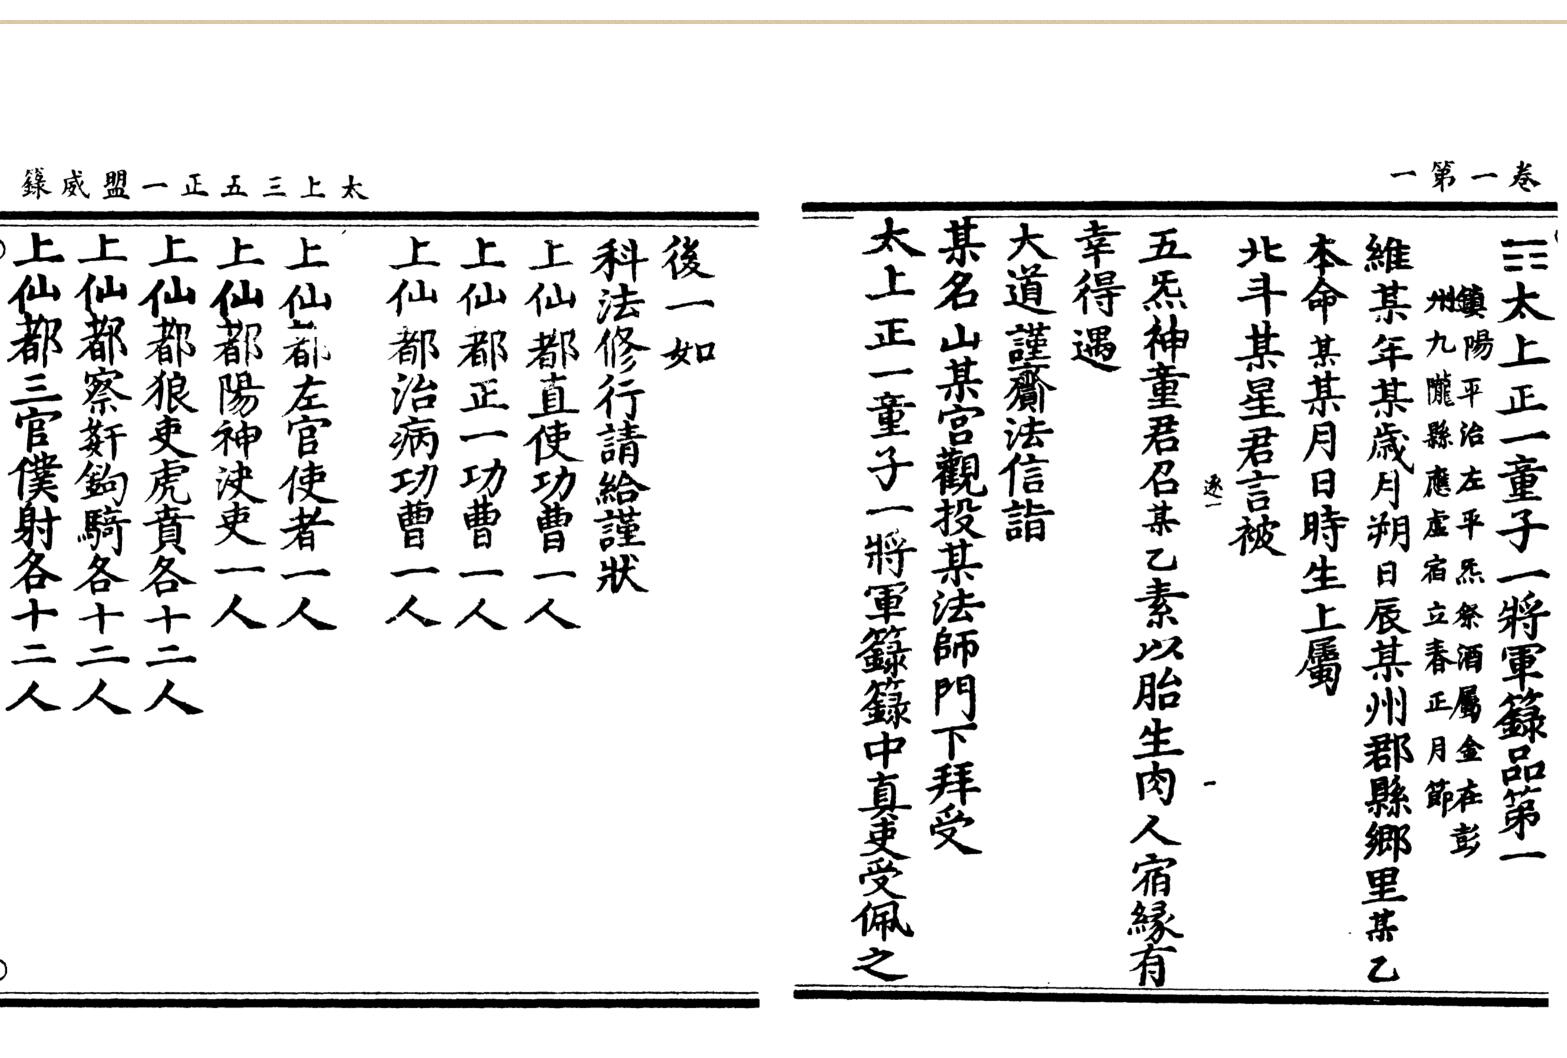 卷一第一
☶太上正一童子一將軍籙品第一
鎮陽平治左平炁祭酒屬金在彭
州九隴縣應虛宿立春正月節
維某年某歲月朔日辰某州郡縣鄉里某乙
本命某某月日時生上屬
北斗某星君言被
逐一
五炁神童君召某乙素以胎生肉人宿緣有
幸得遇
大道謹齎法信詣
某名山某宮觀投某法師門下拜受
太上正一童子一將軍籙籙中真吏受佩之
太上三五正一盟威籙
後一如
科法修行請給謹狀
上仙都直使功曹一人
上仙都正一功曹一人
上仙都治病功曹一人
上仙都左官使者一人
上仙都陽神決吏一人
上仙都狼吏虎賁各十二人
上仙都察奸鉤騎各十二人
上仙都三官僕射各十二人